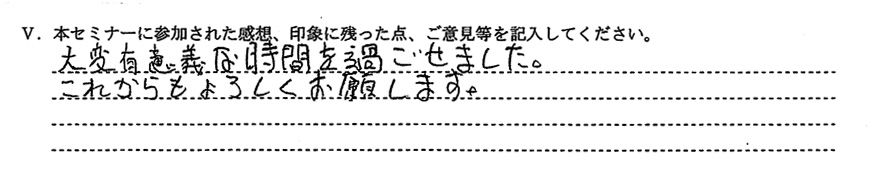 Ⅴ．本セミナーに参加された感想、印象に残った点、ご意見等を記入してください。
大変有意義な時間を過ごせました。
これからもよろしくお願します。